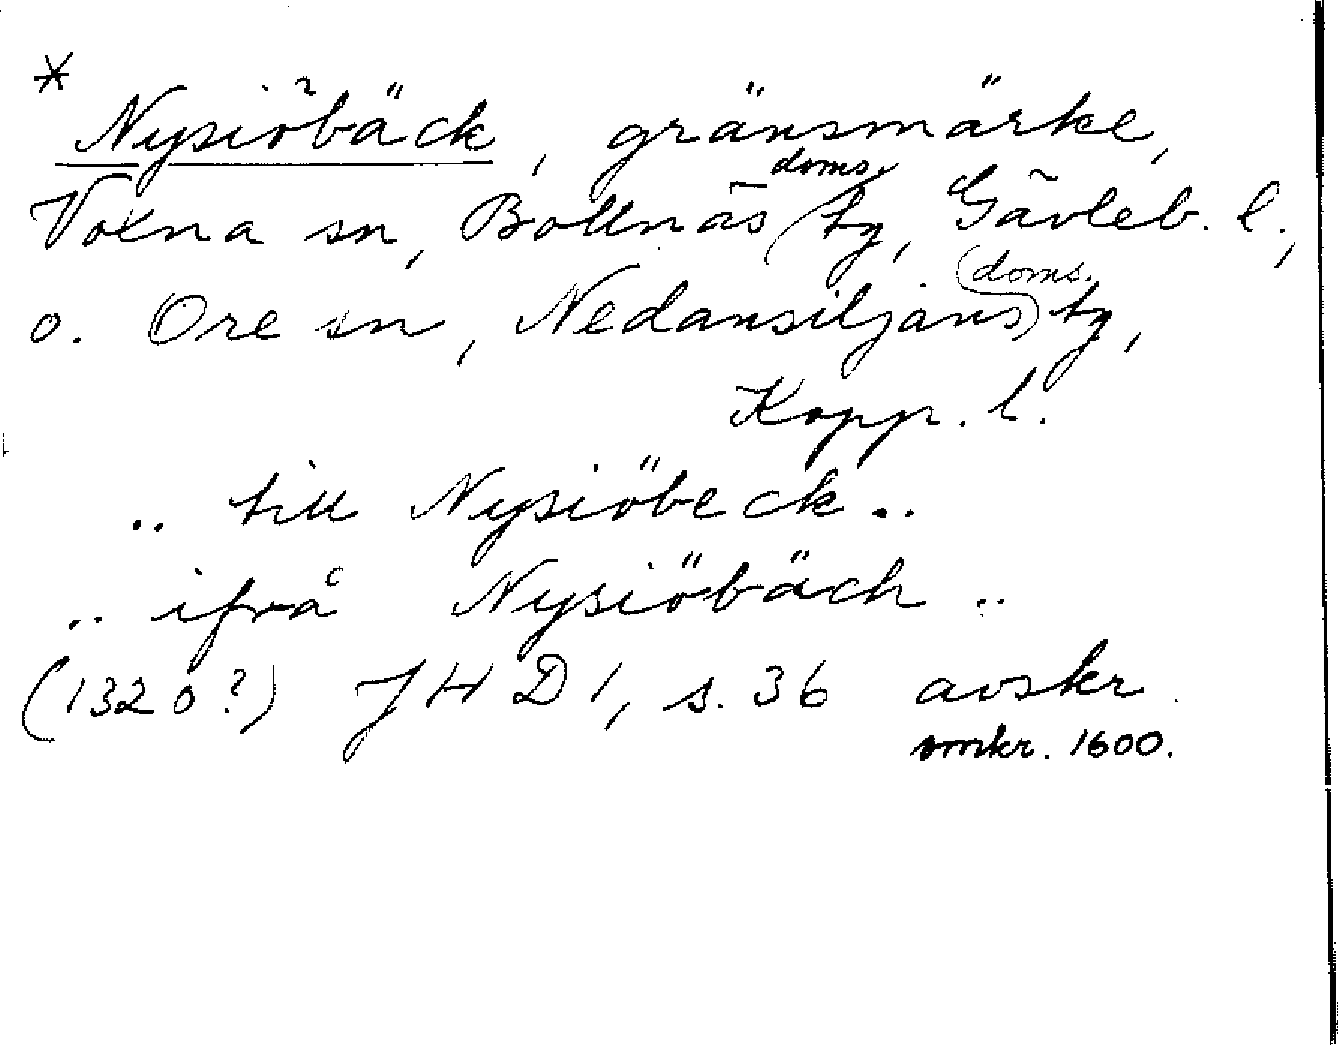 *
Nysiöbäck, gränsmärke,
Voxna sn, Bollnäs doms. tg, Gävleb. l.,
o. Ore sn, Nedansiljans doms. tg,
Kopp. l.
.. till Nysiöbeck ..
.. ifrå Nysiöbäch ..
(1320?) JHD 1, s. 36 avskr.
omkr. 1600.